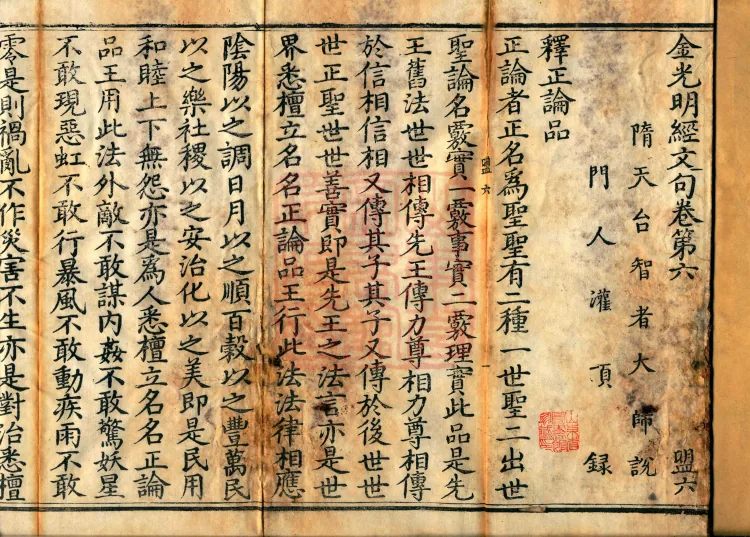 金光明經文句卷第六 盟六
隋天台智者大師說
門人灌頂錄
釋正論品
正論者正名爲聖聖有二種一世聖二出世
盟六
聖論名覈實一覈事實二覈理實此品是先
王舊法世世相傳先王傳力尊相力尊相傳
於信相信相又傳其子其子又傳於後世世
世正聖世世善實即是先王之法言亦是世
界悉檀立名名正論品王行此法法律相應
陰陽以之調日月以之順百穀以之豐萬民
以之樂社稷以之安治化以之美即是民用
和睦上下無怨亦是爲人悉檀立名名正論
品王用此法外敵不敢謀內姦不敢驚妖星
不敢現惡虹不敢行暴風不敢動疾雨不敢
零是則禍亂不作災害不生亦是對治悉檀